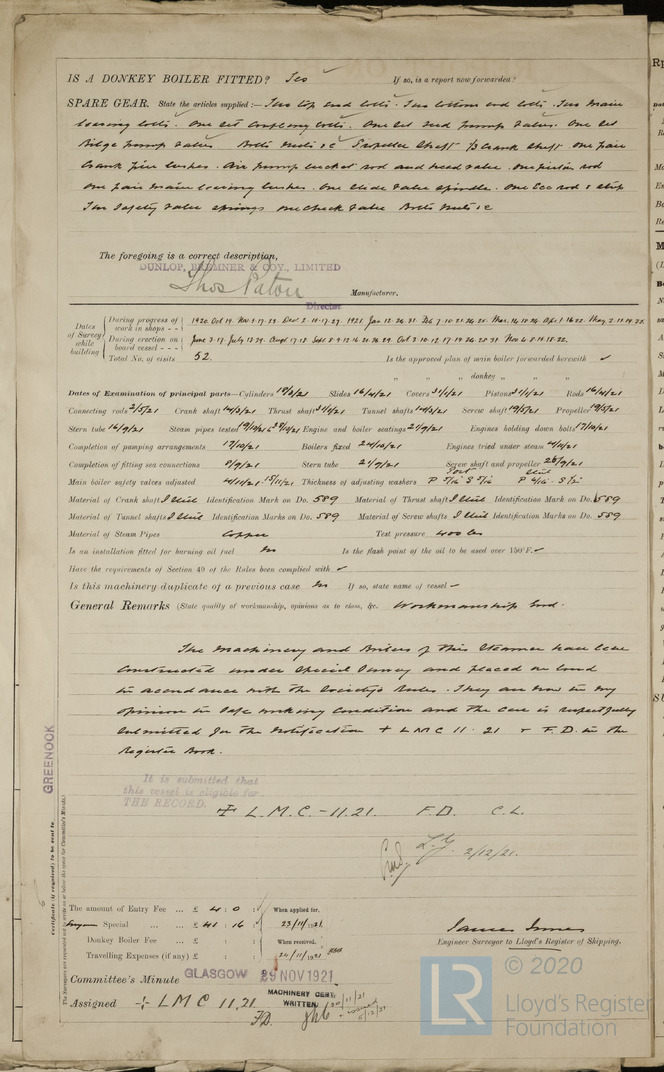 IS A DONKEY BOILER FITTED? Yes If so, is a report now forwarded?
SPARE GEAR. State the articles supplied :— Two top end bolts. Two bottom end bolts. Two main
bearing bolts. One set coupling bolts. One set feed pump valves. One set
Bilge pump valves Bolts nuts &c Propeller shaft 1/3 Crank shaft one pair
Crank pin bushes. Air pump bucket rod and head valve. One piston rod
one pair main bearing bushes. One slide valve spindle. One Ecc rod & strap
Two Safety valve springs one check valve Bolts nuts &c
The foregoing is a correct description,
DUNLOP, BREMNER & COY., LIMITED
Thos Paton Manufacturer.
Director
Dates of Survey while building
During progress of work in shops - - 1920. Oct 19. Nov 3.17.23. Dec 2.
During erection on board vessel - - -
Total No. of visits 52. Is the approved plan of main boiler forwarded herewith ✓
" " " donkey " "
Dates of Examination of principal parts—Cylinders Slides 16/4/21 Covers 31/1/21 Pistons 31/1/21 Rods 16/4/21
Connecting rods 2/5/21 Crank shaft Thrust shaft Tunnel shafts Screw shaft 19/5/21 Propeller 19/5/21
Stern tube 16/9/21 Steam pipes tested Engine and boiler seatings 21/9/21 Engines holding down bolts 17/10/21
Completion of pumping arrangements 17/10/21 Boilers fixed 24/10/21 Engines tried under steam 4/11/21
Completion of fitting sea connections 8/9/21 Stern tube 21/9/21 Screw shaft and propeller 26/9/21
Main boiler safety valves adjusted 4/11/21. 15/11/21 Thickness of adjusting washers
Material of Crank shaft I Steel Identification Mark on Do. 589 Material of Thrust shaft I Steel Identification Mark on Do. 589
Material of Tunnel shafts I Steel Identification Marks on Do. 589 Material of Screw shafts I Steel Identification Marks on Do. 589
Material of Steam Pipes Copper Test pressure 400 lbs
Is an installation fitted for burning oil fuel No Is the flash point of the oil to be used over 150°F. ✓
Have the requirements of Section 49 of the Rules been complied with ✓
Is this machinery duplicate of a previous case No If so, state name of vessel ✓
General Remarks (State quality of workmanship, opinions as to class, &c. Workmanship Good.
The Machinery and Boilers of this Steamer have been
Constructed under Special Survey and placed on board
in accordance with the Society's Rules. They are now in my
opinion in safe working condition and the case is respectfully
submitted for the notification + LMC 11.21 & F.D. in the
Register Book.
It is submitted that
this vessel is eligible for
THE RECORD.
+ L.M.C. - 11.21. F.D. C.L.
2/12/21.
GREENOOK
Certificate (if required) to be sent to
The Surveyors are requested not to write on or below the space for Committee's Minute.
The amount of Entry Fee ... £ 4 : 0 : When applied for,
Special ... £ 41 : 16 : 23/11/1921
Donkey Boiler Fee ... £ : : When received,
Travelling Expenses (if any) £ : : 24/11/1921
James Innes
Engineer Surveyor to Lloyd's Register of Shipping.
Committee's Minute GLASGOW 29 NOV 1921
Assigned + LMC 11.21
F.D.
MACHINERY CERT.
WRITTEN.
© 2020
LR
Lloyd's Register
Foundation